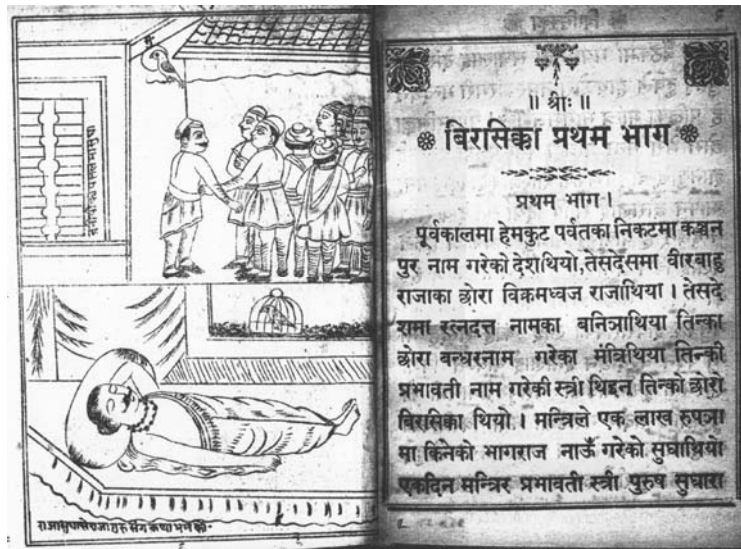 ॥ श्रीः ॥
बिरसिक्का प्रथम भाग
प्रथम भाग।
पूर्वकालमा हेमकुट पर्वतका निकटमा कञ्चन
पुर नाम गरेको देशथियो,तेसदेसमा वीरबाहु
राजाका छोरा विक्रमध्वज राजाथिया। तेसदे
शमा रत्नदत्त नामका बनिञाथिया तिन्का
छोरा बन्धरनाम गरेका मंत्रिथिया तिन्की
प्रभावती नाम गरेकी स्त्री थिइन् तिन्को छोरो
बिरसिका थियो। मन्त्रिले एक लाख रुपञा
मा किनेको भागराज नाऊँ गरेको सुघाथियो
एकदिन मन्त्रिर प्रभावती स्त्री पुरुष सुघारा